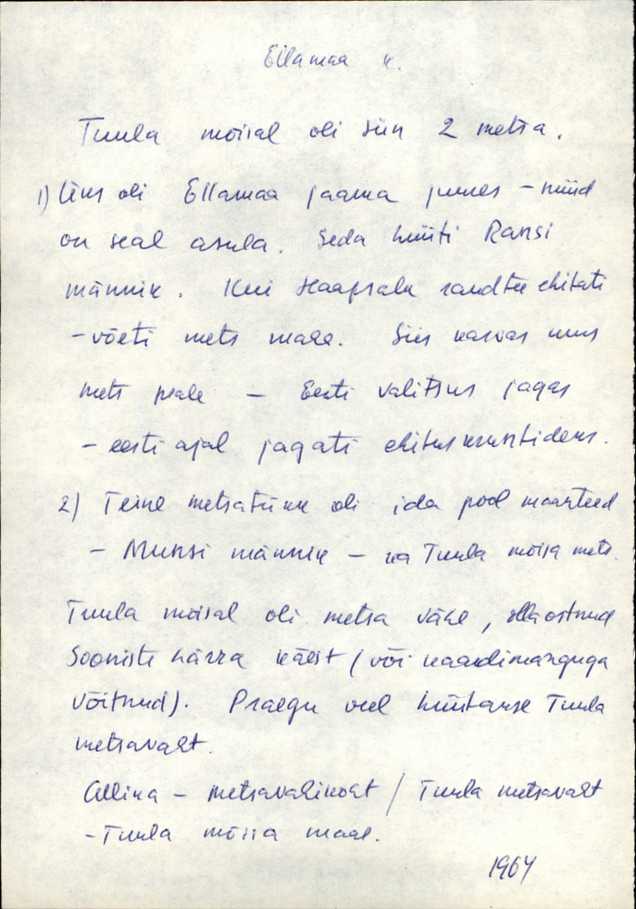 Ellamaa k.
Tuula mõisal oli siin 2 metsa.
1) Üks oli Ellamaa jaama juures – nüüd
on seal asula. Seda hüüti Ransi
männik. Kui Haapsalu raudtee ehitati
– võeti mets maha. Siis kasvas uus
mets peale – Eesti valitsus jagas
– eesti ajal jagati ehituskruntideks.
2) Teine metsatükk oli ida pool maanteed
– Munsi männik – ka Tuula mõisa mets.
Tuula mõisal oli metsa vähe, olla ostnud
Sooniste härra käest (või kaardimänguga
võitnud). Praegu veel hüütakse Tuula
metsavaht.
Allika – metsavahikoht / Tuula metsavaht
– Tuula mõisa maal.
1964